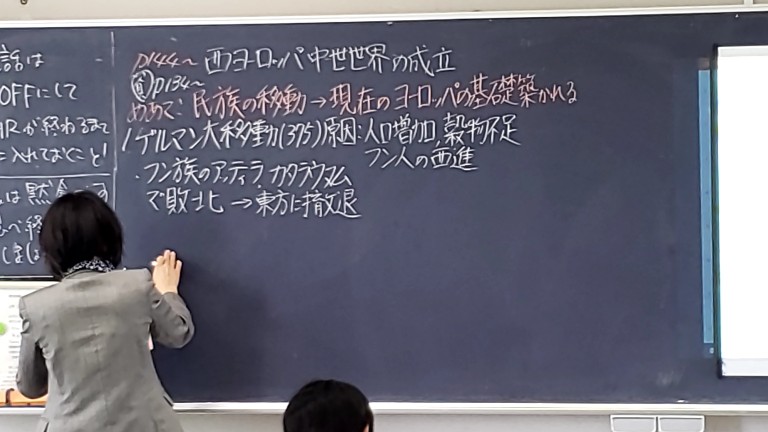 話は
OFFにして
HRが終わるまで
に入れておくこと!
は黙
べ終
しまし
P144~ 西ヨーロッパ中世世界の成立
資p134~
めあて:民族の移動→現在のヨーロッパの基礎築かれる
1ゲルマン大移動(375)原因:人口増加,穀物不足
フン人の西進
・フン族のアッティラ,カタラウヌム
で敗北→東方に撤退